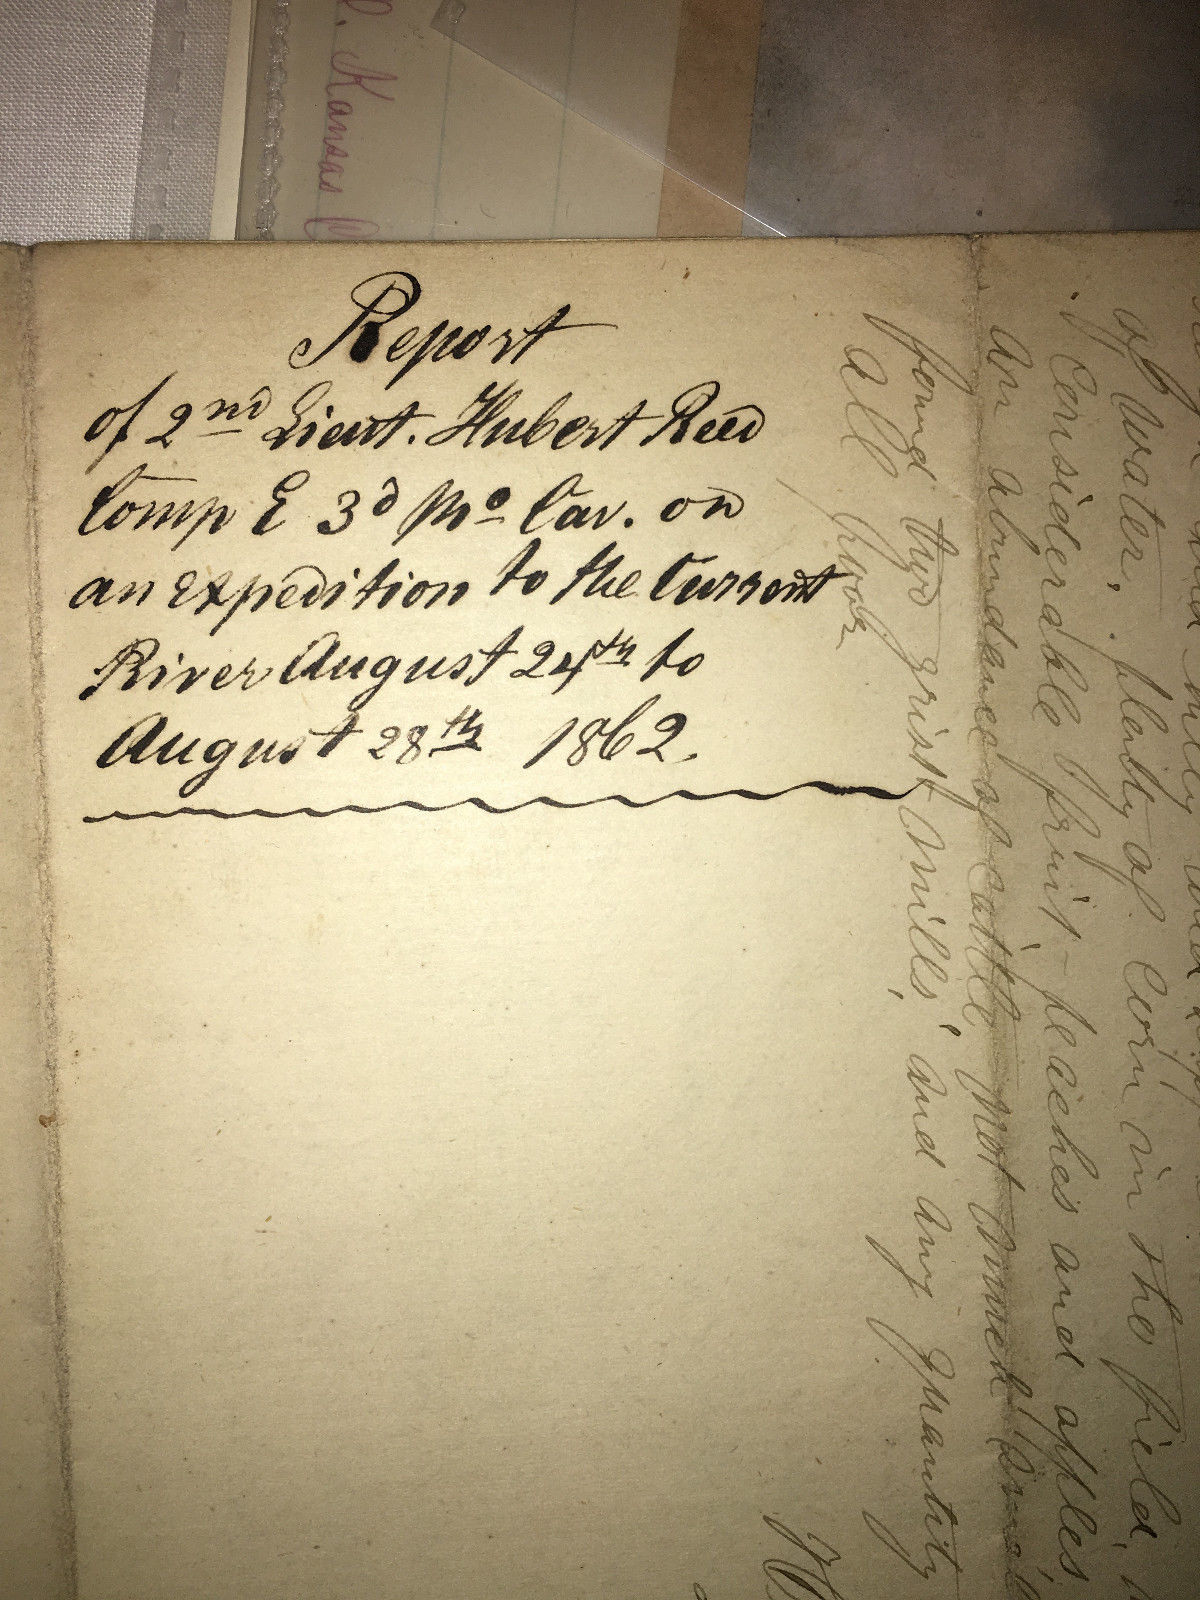 Report
of 2nd Lieut. Hubert Reed
Comp E 3d Mo Cav. on
an expedition to the Current
River August 24th to
August 28th 1862.
of water. plenty of Corn in the field,
Considerable fruit - peaches and apples,
an abundance of cattle, not
found two grist mills, and any quantity
all poor
Kansas